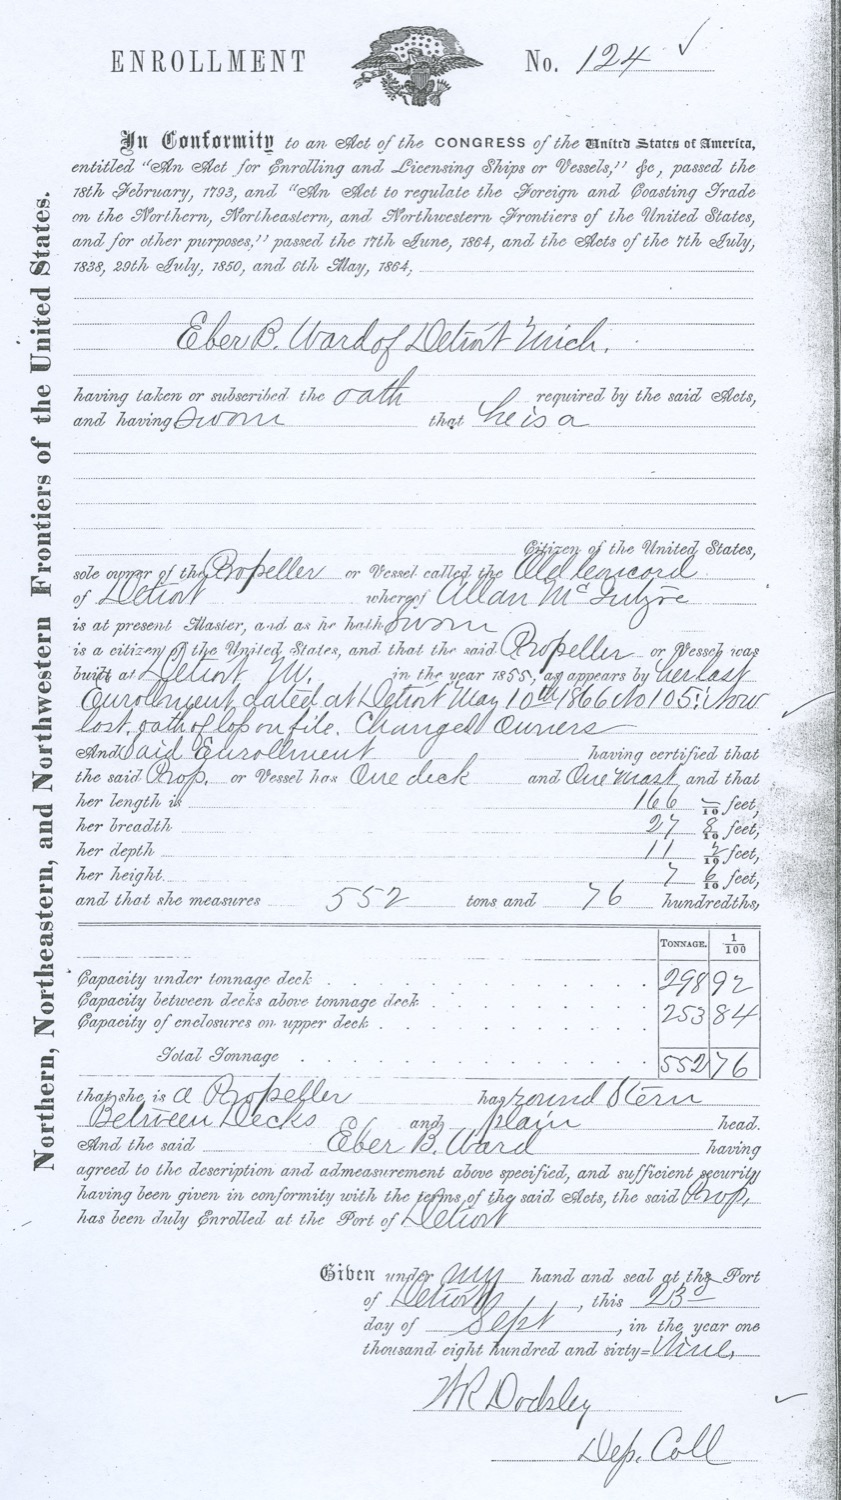 ENROLLMENT No. 124 ✓
In Conformity to an Act of the CONGRESS of the United States of America,
entitled "An Act for Enrolling and Licensing Ships or Vessels," &c, passed the
18th February, 1793, and "An Act to regulate the Foreign and Coasting Trade
on the Northern, Northeastern, and Northwestern Frontiers of the United States,
and for other purposes," passed the 17th June, 1864, and the Acts of the 7th July,
1838, 29th July, 1850, and 6th May, 1864,
Eber B. Ward of Detroit Mich.
having taken or subscribed the oath required by the said Acts,
and having sworn that he is a
Citizen of the United States,
sole owner of the Propeller or Vessel called the Old Concord
of Detroit whereof Allan McIntyre
is at present Master, and as he hath sworn
is a citizen of the United States, and that the said Propeller or Vessel was
built at Detroit M. in the year 1855, as appears by her last
Enrollment dated at Detroit May 10th 1866 No 105. Now
lost, oath of lop on file. Changed Owners
And said Enrollment having certified that
the said Prop. or Vessel has One deck and One mast and that
her length is 166 –/10 feet,
her breadth 27 8/10 feet,
her depth 11 2/10 feet,
her height 7 6/10 feet,
and that she measures 552 tons and 76 hundredths,
TONNAGE. 1/100
Capacity under tonnage deck 298 92
Capacity between decks above tonnage deck 253 84
Capacity of enclosures on upper deck
Total Tonnage 552 76
that she is a Propeller has round Stern
Between Decks and plain head.
And the said Eber B. Ward having
agreed to the description and admeasurement above specified, and sufficient security
having been given in conformity with the terms of the said Acts, the said Prop.
has been duly Enrolled at the Port of Detroit
Given under my hand and seal at the Port
of Detroit, this 23d
day of Sept, in the year one
thousand eight hundred and sixty=Nine.
WR Dodsley
Dep. Coll
Northern, Northeastern, and Northwestern Frontiers of the United States.